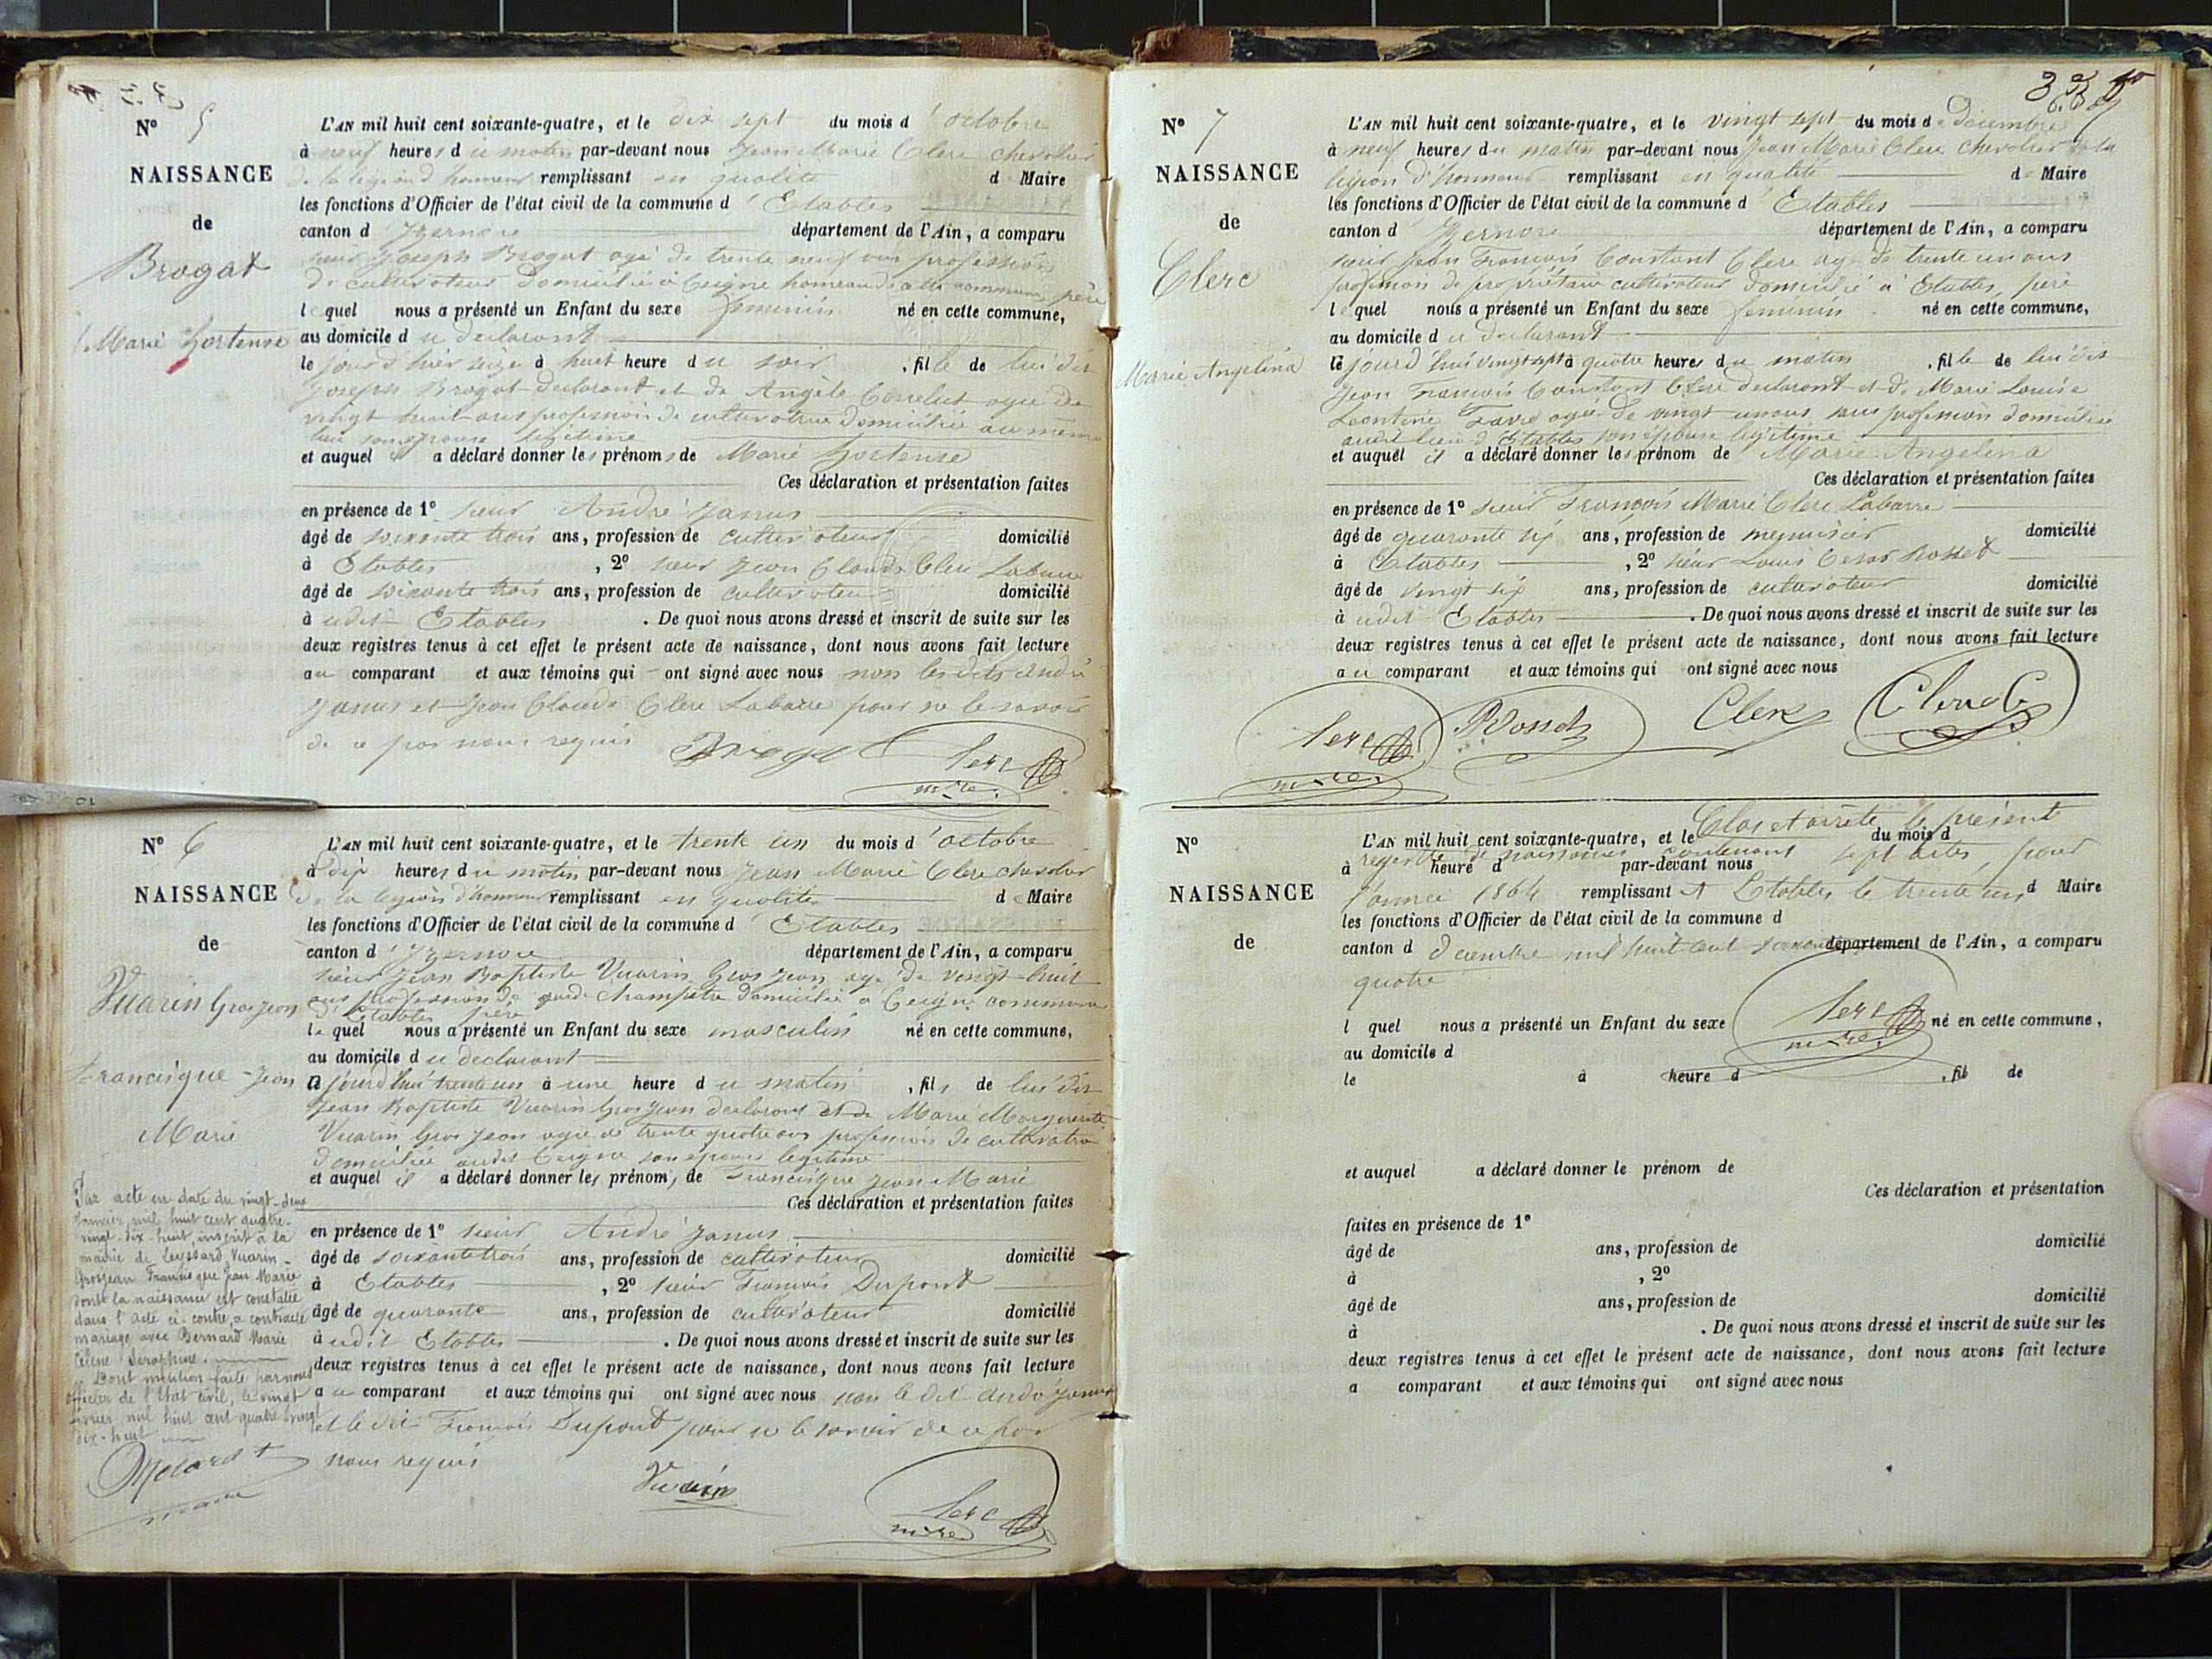 N° 5
NAISSANCE
de
Brogat
Marie Hortense
L'AN mil huit cent soixante-quatre, et le dix sept du mois d'octobre
à neuf heures du matin par-devant nous Jean Marie Clerc chevalier
de la légion d'honneur remplissant en qualité de Maire
les fonctions d'Officier de l'état civil de la commune d'Etables
canton d'Izernore département de l'Ain, a comparu
sieur Joseph Brogat agé de trente neuf ans profession
de cultivateur domicilié à Ceigne hameau de cette commune père
lequel nous a présenté un Enfant du sexe feminin né en cette commune,
au domicile du declarant
le jourd'hier seize à huit heure du soir, fille de lui dit
Joseph Brogat declarant et de Angèle agée de
vingt huit ans profession de cultivatrice domiciliée au même
lieu son épouse légitime
et auquel il a déclaré donner les prénoms de Marie Hortense
Ces déclaration et présentation faites
en présence de 1° sieur André Janus
âgé de soixante trois ans, profession de cultivateur domicilié
à Etables, 2° sieur Jean Claude Clerc Labarre
âgé de soixante trois ans, profession de cultivateur domicilié
à udit Etables. De quoi nous avons dressé et inscrit de suite sur les
deux registres tenus à cet effet le présent acte de naissance, dont nous avons fait lecture
au comparant et aux témoins qui ont signé avec nous non les dits André
Janus et Jean Claude Clerc Labarre pour ne le savoir
de ce par nous requis
Brogat Clerc
mre
N° 6
NAISSANCE
de
Vuarin Grosjean
Francisque Jean
Marie
L'AN mil huit cent soixante-quatre, et le trente un du mois d'octobre
à dix heures du matin par-devant nous Jean Marie Clerc chevalier
de la légion d'honneur remplissant en qualité de Maire
les fonctions d'Officier de l'état civil de la commune d'Etables
canton d'Izernore département de l'Ain, a comparu
sieur Jean Baptiste Vuarin Gros jean agé de vingt huit
ans profession de garde champêtre domicilié à Ceigne commune
d'Etables père
lequel nous a présenté un Enfant du sexe masculin né en cette commune,
au domicile du declarant
ajourd'hui trente un à une heure du matin, fils de lui dit
Jean Baptiste Vuarin Gros jean declarant et de Marie Marguerite
Vuarin Gros jean agée de trente quatre ans profession de cultivatrice
domiciliée audit Ceigne son épouse légitime
et auquel il a déclaré donner les prénoms de Francisque Jean Marie
Ces déclaration et présentation faites
en présence de 1° sieur André Janus
âgé de soixante trois ans, profession de cultivateur domicilié
à Etables, 2° sieur François Dupont
âgé de quarante ans, profession de cultivateur domicilié
à udit Etables. De quoi nous avons dressé et inscrit de suite sur les
deux registres tenus à cet effet le présent acte de naissance, dont nous avons fait lecture
au comparant et aux témoins qui ont signé avec nous non le dit André Janus
et le dit François Dupont pour ne le savoir de ce par
nous requis
Vuarin
Clerc
mre
Par acte en date du vingt-deux
janvier mil huit cent quatre-
vingt-dix-huit, inscrit à la
mairie de Leyssard, Vuarin-
Grosjean Francisque Jean Marie
dont la naissance est constatée
dans l'acte ci-contre, a contracté
mariage avec Bernard Marie
Céline Séraphine.
Dont mention faite par nous
Officier de l'Etat civil, le vingt
février mil huit cent quatre-vingt
dix-huit
N° 7
NAISSANCE
de
Clerc
Marie Angelina
L'AN mil huit cent soixante-quatre, et le vingt sept du mois de decembre
à neuf heures du matin par-devant nous Jean Marie Clerc chevalier de la
légion d'honneur remplissant en qualité de Maire
les fonctions d'Officier de l'état civil de la commune d'Etables
canton d'Izernore département de l'Ain, a comparu
sieur Jean François Constant Clerc agé de trente un ans
profession de propriétaire cultivateur domicilié à Etables, père
lequel nous a présenté un Enfant du sexe feminin né en cette commune,
au domicile du declarant
le jourd'hui vingt sept à quatre heures du matin, fille de lui dit
Jean François Constant Clerc declarant et de Marie Louise
Leontine Favre agée de vingt un ans, sans profession domiciliée
audit lieu d'Etables son épouse légitime
et auquel il a déclaré donner les prénom de Marie Angelina
Ces déclaration et présentation faites
en présence de 1° sieur François Marie Clerc Labarre
âgé de quarante six ans, profession de menuisier domicilié
à Etables, 2° sieur Louis Cesar Rosset
âgé de vingt six ans, profession de cultivateur domicilié
à udit Etables. De quoi nous avons dressé et inscrit de suite sur les
deux registres tenus à cet effet le présent acte de naissance, dont nous avons fait lecture
au comparant et aux témoins qui ont signé avec nous
Clerc Rosset Clerc Clerc
mre
N°
NAISSANCE
de
L'AN mil huit cent soixante-quatre, et le du mois d
Clos et arrêté le présent
à heure d par-devant nous
registre de naissances contenant sept actes, pour
l'année 1864 remplissant A Etables le trente un d Maire
les fonctions d'Officier de l'état civil de la commune d
canton d decembre mil huit cent soixante département de l'Ain, a comparu
quatre
Clerc
mre
l quel nous a présenté un Enfant du sexe né en cette commune,
au domicile d
le à heure d , fil de
et auquel a déclaré donner le prénom de
Ces déclaration et présentation
faites en présence de 1°
âgé de ans, profession de domicilié
à , 2°
âgé de ans, profession de domicilié
à . De quoi nous avons dressé et inscrit de suite sur les
deux registres tenus à cet effet le présent acte de naissance, dont nous avons fait lecture
a comparant et aux témoins qui ont signé avec nous